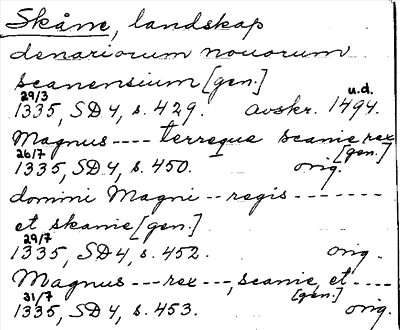 Skåne, landskap
denariorum nouorum
scanensium [gen.]
29/3 u.d.
1335, SD4, s. 429. avskr. 1494.
Magnus ---- terreque scanie rex
26/7 [gen.]
1335, SD4, s. 450. orig.
domini Magni -- regis -------
et skanie [gen.]
29/7
1335, SD4, s. 452. orig.
Magnus --- rex ---, scanie, et ----
31/7 [gen.]
1335, SD4, s. 453. orig.